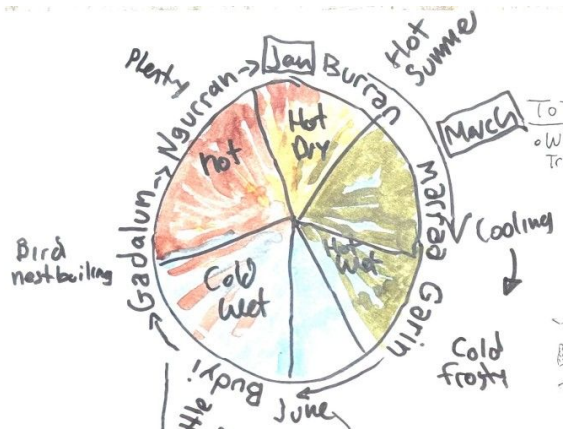 Plenty
Ngurran
Jan
Burran
Hot
Summe
March
To
Marraa
Cooling
Garin
Cold
frosty
June
Budyi
Gadalun
Bird
nestboiling
hot
Hot
Dry
Hot
Wet
Cold
Wet